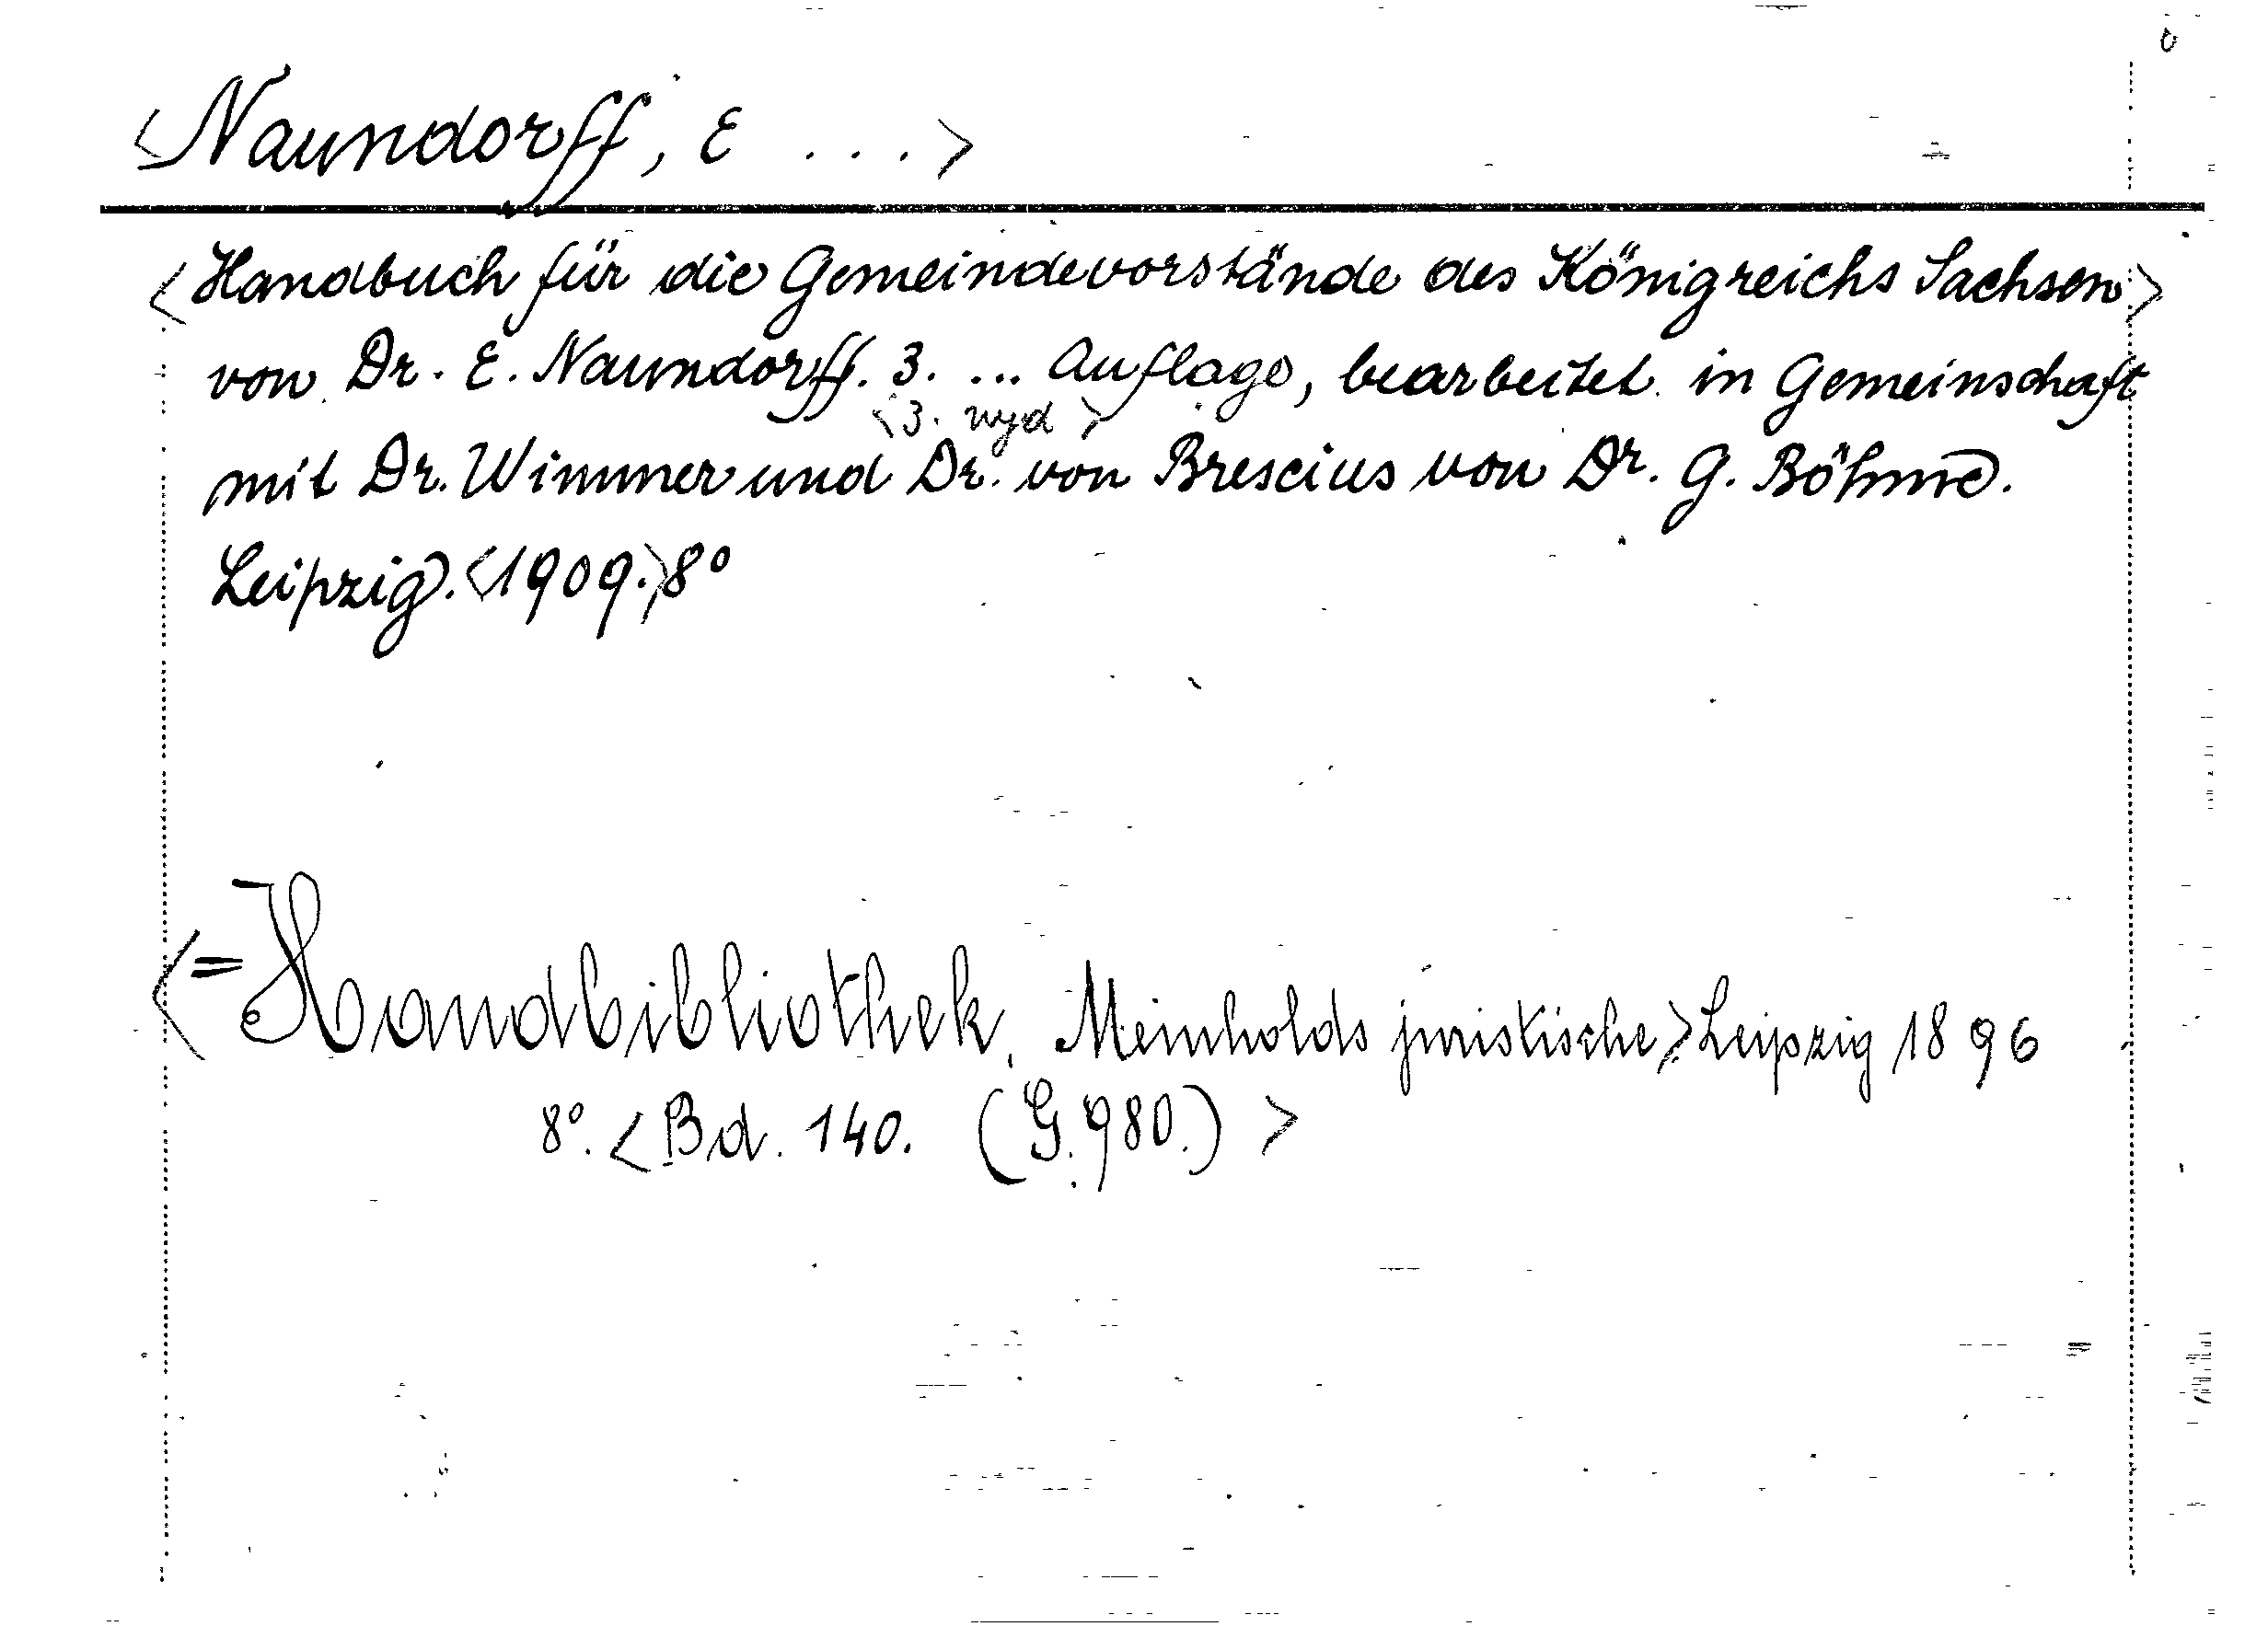 <Naundorff, E ...>
<Handbuch für die Gemeindevorstände des Königreichs Sachsen>
von Dr. E. Naundorff. 3. ... Auflage, bearbeitet in Gemeinschaft
<3. wyd>
mit Dr. Wimmer und Dr. von Brescius von Dr. G. Böhme.
Leipzig. <1909.> 8°
<=Handbibliothek, Meinholds juristische> Leipzig 1896
8°. <Bd. 140. (G. 980.)>